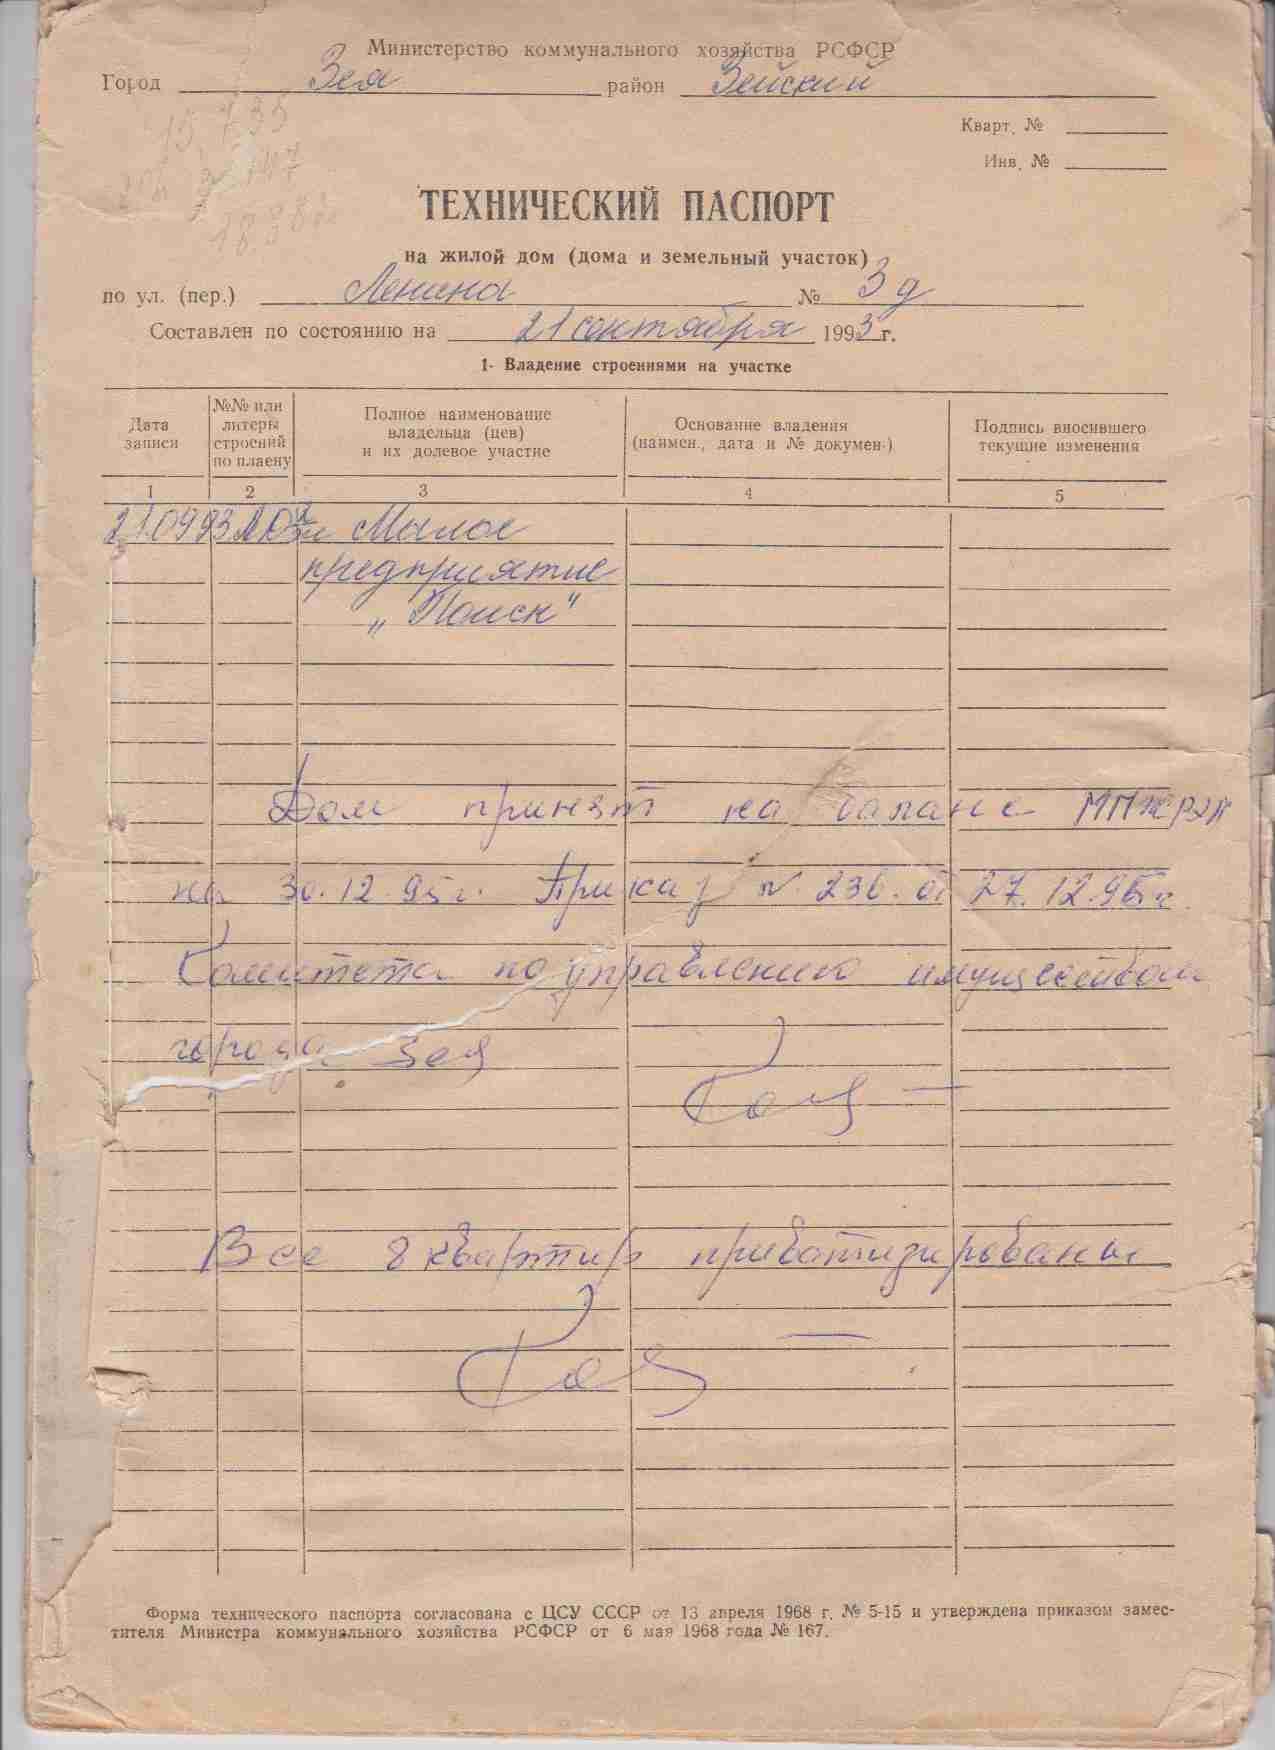 Министерство коммунального хозяйства РСФСР
Город Зея район Зейский
Кварт. №
Инв. №
15,735
18.88
ТЕХНИЧЕСКИЙ ПАСПОРТ
на жилой дом (дома и земельный участок)
по ул. (пер.) Ленина № 3д
Составлен по состоянию на 21 сентября 1993 г.
1- Владение строениями на участке
Дата записи
№№ или литеры строений по плаену
Полное наименование владельца (цев) и их долевое участие
Основание владения (наимен., дата и № докумен-)
Подпись вносившего текущие изменения
1 2 3 4 5
21.09.93 Малое
предприятие
„Поиск"
Дом принят на баланс
на 30.12.95г. Приказ № 236. от 27.12.95г.
Комитета по управлению имуществом
города Зея
Все 8 квартир приватизированы
Форма технического паспорта согласована с ЦСУ СССР от 13 апреля 1968 г. № 5-15 и утверждена приказом замес-
тителя Министра коммунального хозяйства РСФСР от 6 мая 1968 года № 167.